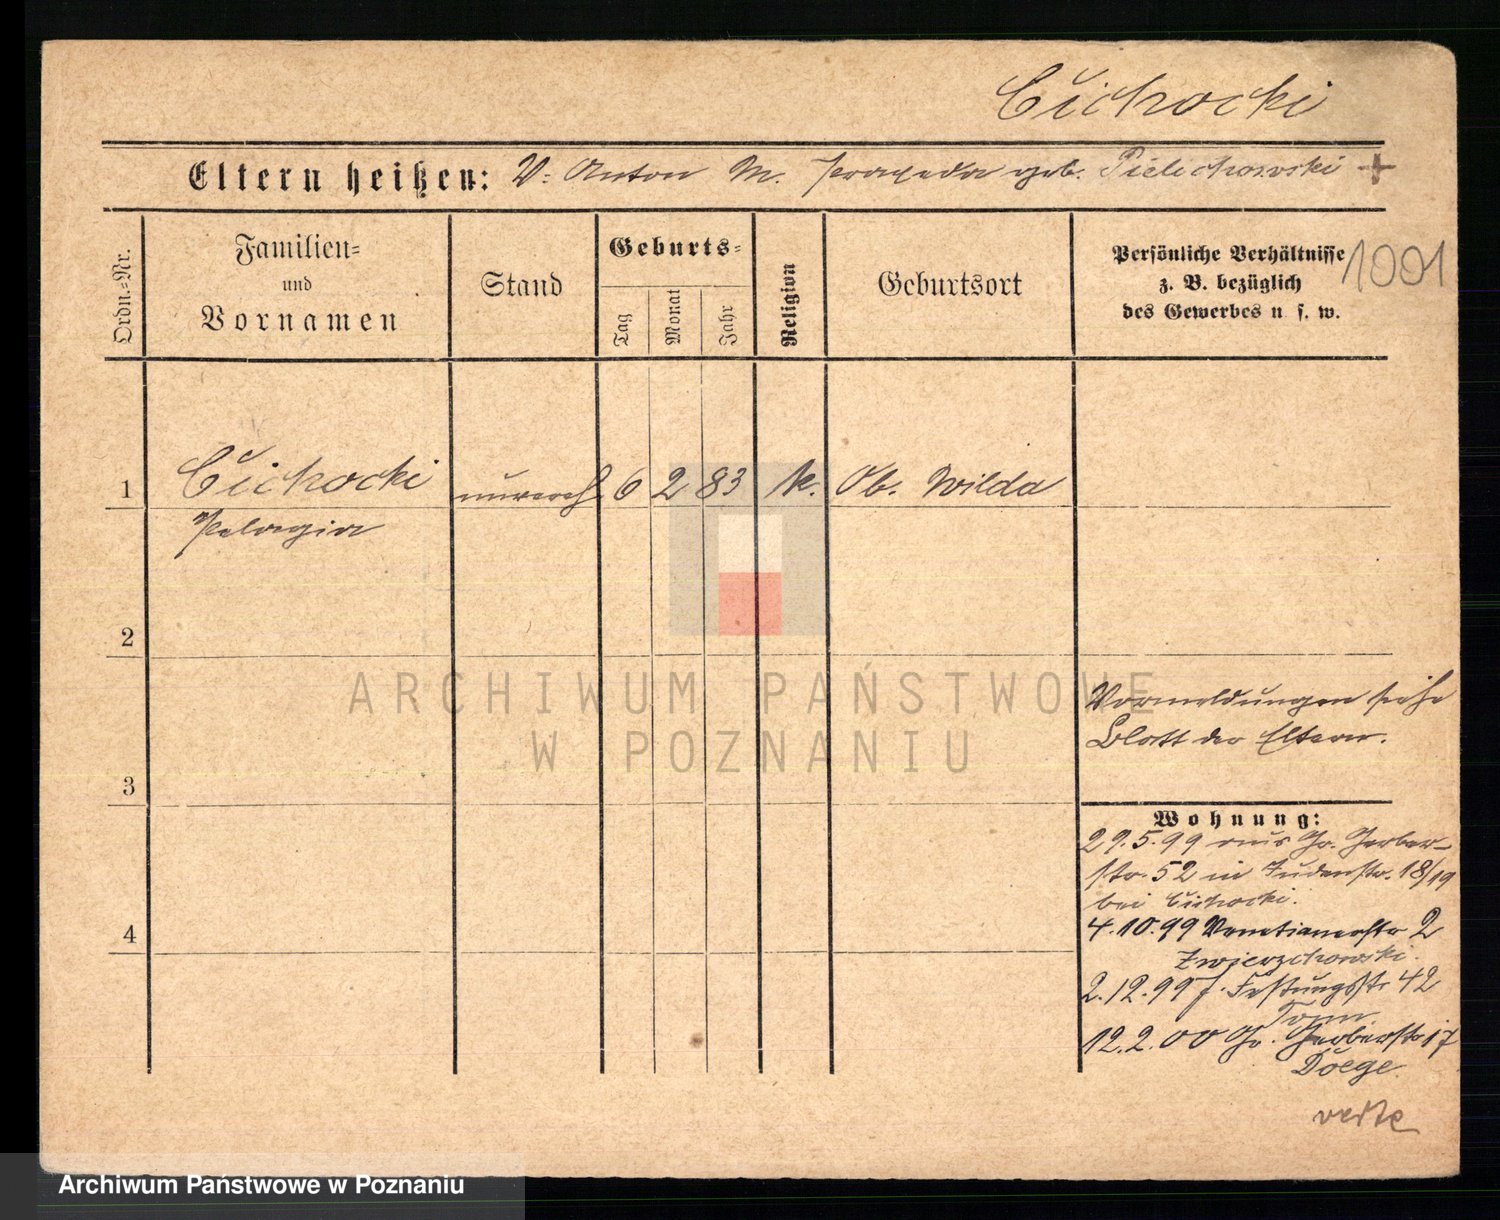 Cichocki
Eltern heißen: V: Anton M. Praxeda geb. Pielichowski +
Ordn.=Nr.
Familien=
und
Vornamen
Stand
Geburts=
Tag
Monat
Jahr
Religion
Geburtsort
Persönliche Verhältnisse
z. B. bezüglich
des Gewerbes u. s. w.
1001
1 Cichocki unverh. 6 2 83 k. Ob. Wilda
Pelagia
2
ARCHIWUM PAŃSTWOWE
W POZNANIU
Vormeldungen siehe
Blatt der Eltern.
3
Wohnung:
29.5.99 aus Gr. Gerber-
str. 52 in Judenstr. 18/19
bei Cichocki.
4
4.10.99 Venetianerstr 2
Zwierzchowski.
2.12.99 f. Festungsstr 42
12.2.00 Gr. Gerberstr 17
Döege.
verte
Archiwum Państwowe w Poznaniu